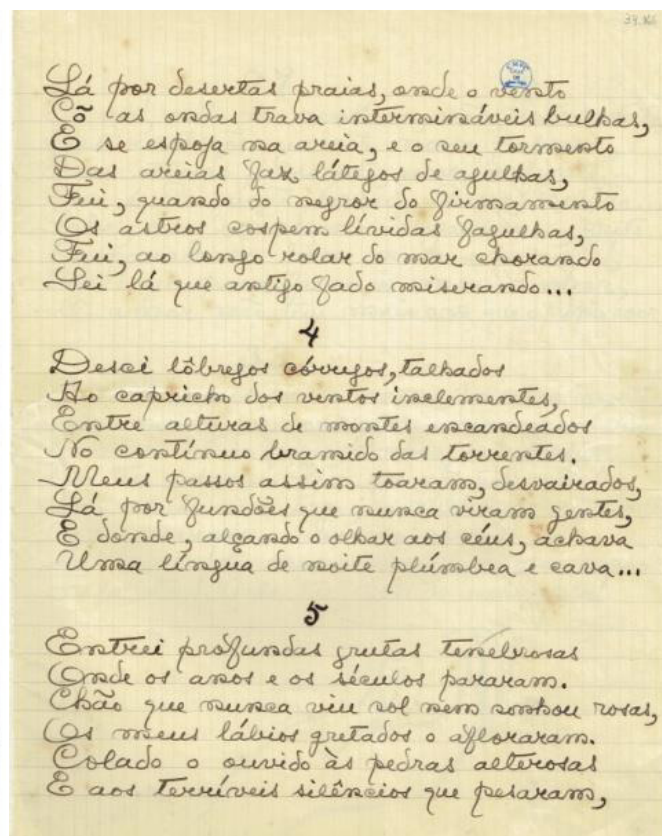 Lá por desertas praias, onde o vento
Cõ as ondas trava intermináveis bulhas,
E se espoja na areia, e o seu tormento
Das areias faz látegos de agulhas,
Fui, quando do negror do firmamento
Os astros cospem lívidas fagulhas,
Fui, ao longo rolar do mar chorando
Sei lá que antigo fado miserando...
4
Desci lôbregos córregos, talhados
Ao capricho dos ventos inclementes,
Entre alturas de montes encandeados
No contínuo bramido das torrentes.
Meus passos assim toaram, desvairados,
Lá por fundões que nunca viram gentes,
E donde, alçando o olhar aos céus, achava
Uma língua de noite plúmbea e cava...
5
Entrei profundas grutas tenebrosas
Onde os anos e os séculos pararam.
Chão que nunca viu sol nem sonhou rosas,
Os meus lábios gretados o afloraram.
Colado o ouvido às pedras alterosas
E aos terríveis silêncios que pesaram,